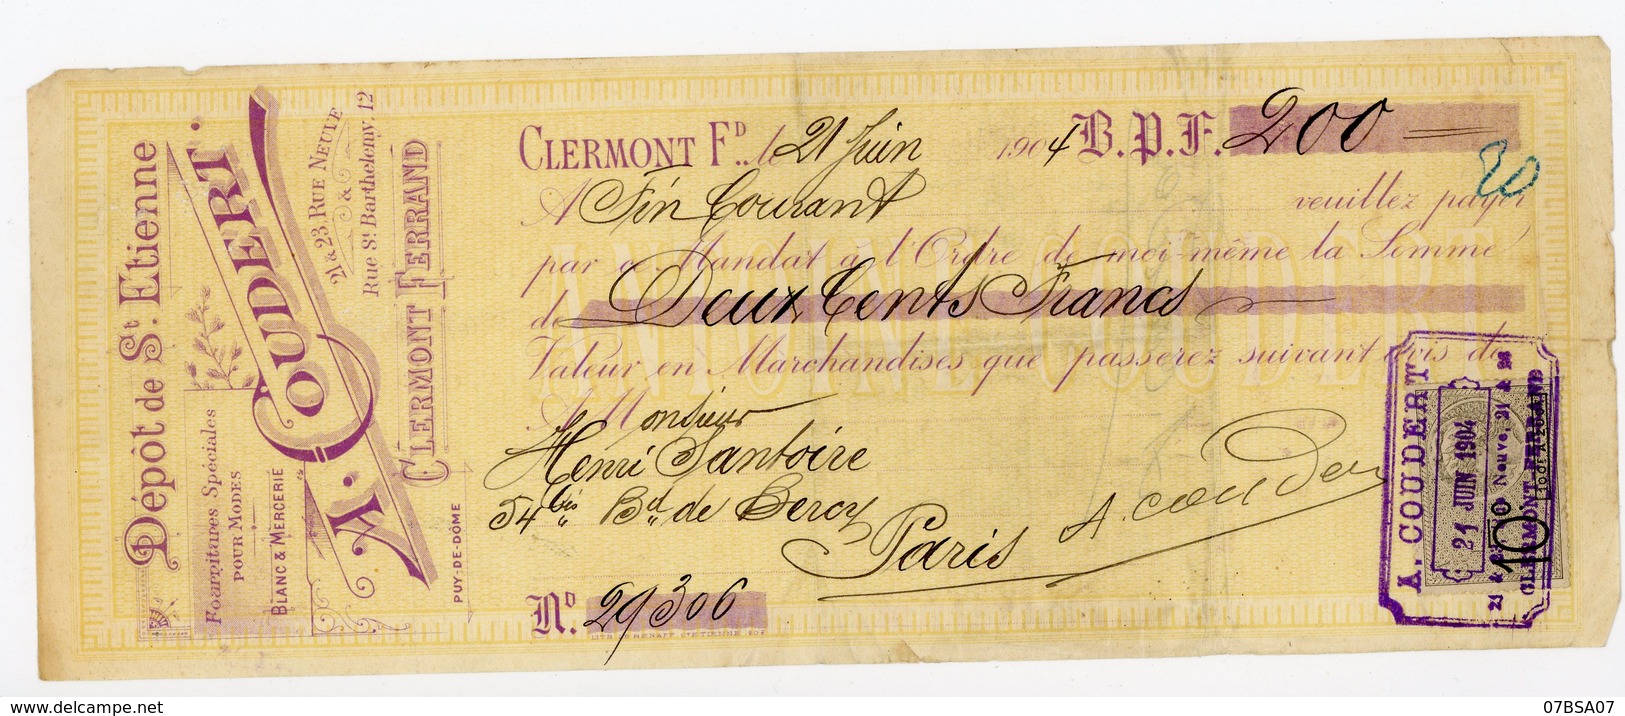 Dépôt de St. Etienne
Fournitures Spéciales
POUR MODES
BLANC & MERCERIE
A. COUDERT.
21 & 23 RUE NEUVE
&
Rue St. Barthelemy, 12
CLERMONT FERRAND
PUY-DE-DÔME
CLERMONT FD.. le 21 Juin 1904 B.P.F. 200
20
A Fin Courant veuillez payer
par ce Mandat à l'Ordre de moi-même la Somme
de Deux Cents Francs
ANTOINE COUDERT
Valeur en Marchandises que passerez suivant avis de
A Monsieur
Henri Santoire
54 bis Bd de Bercy
Paris
A. Coudert
No. 29306
A. COUDERT
21 JUIN 1904
21 & 23, Rue Neuve, 21 & 23
CLERMONT-FERRAND
10
07BSA07